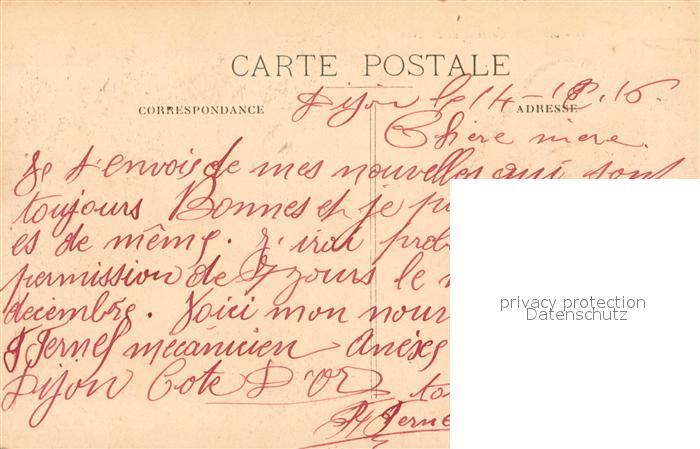 CARTE POSTALE
CORRESPONDANCE
ADRESSE
Dijon le 14-12.16.
Chère mere.
Je t envois de mes nouvelles qui sont
toujours Bonnes et je
es de même. J'irai prob
permission de 7 jours le
decembre. Voici mon nou
Fernel mecanicien Anèxes
Dijon Cote D'or
Ferne
privacy protection
Datenschutz